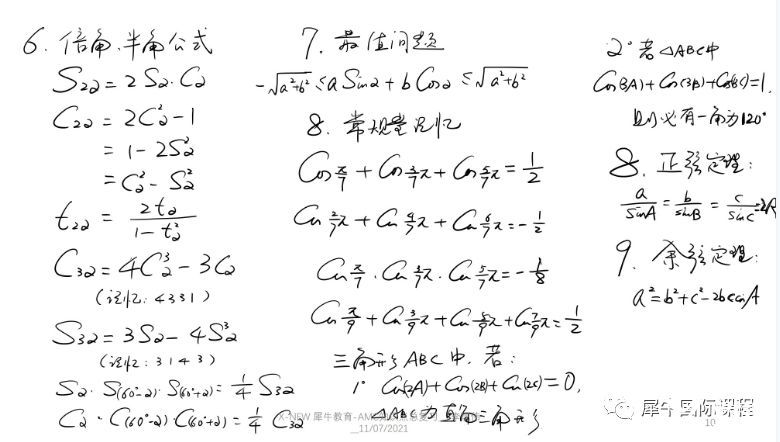 6. 倍角.半角公式
S₂₂ = 2S₂·C₂
C₂₂ = 2C₂² - 1
= 1 - 2S₂²
= C₂² - S₂²
t₂₂ = 2t₂ / (1 - t₂²)
C₃₂ = 4C₂³ - 3C₂
(记忆: 4331)
S₃₂ = 3S₂ - 4S₂³
(记忆: 3143)
S₂·S(60°-2)·S(60°+2) = 1/4 S₃₂
C₂·C(60°-2)·C(60°+2) = 1/4 C₃₂
7. 最值问题
-√(a²+b²) ≤ a Sin2 + b Cos2 ≤ √(a²+b²)
8. 常规量记忆
Cos π/7 + Cos 3/7 π + Cos 5/7 π = 1/2
Cos 2/7 π + Cos 4/7 π + Cos 6/7 π = -1/2
Cos π/7 · Cos 3/7 π · Cos 5/7 π = -1/8
Cos π/9 + Cos 3/9 π + Cos 5/9 π + Cos 7/9 π = 1/2
三角形ABC中.若:
1° Cos(2A) + Cos(2B) + Cos(2C) = 0,
△ABC为直角三角形
2° 若△ABC中
Cos(3A) + Cos(3B) + Cos(3C) = 1,
则必有一角为120°
8. 正弦定理:
a/sinA = b/sinB = c/sinC = 2R
9. 余弦定理:
a² = b² + c² - 2bccosA
X-NEW 犀牛教育-AM
11/07/2021
10
犀牛国际课程